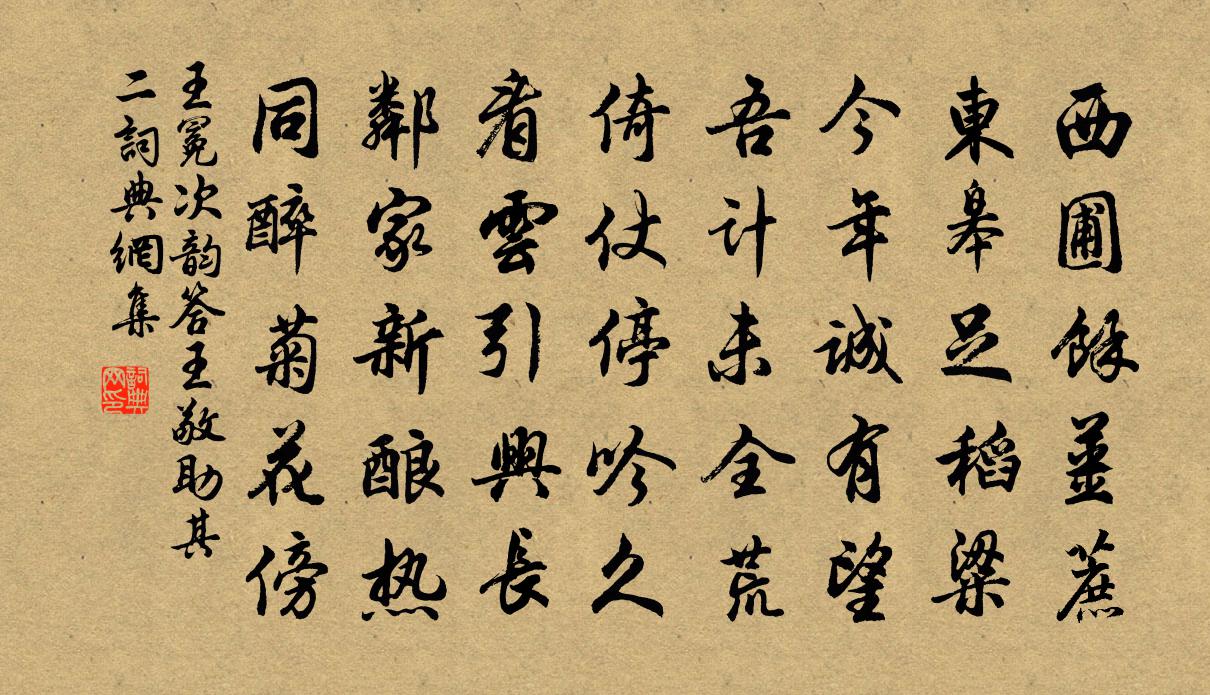 西圃餘薑蔗
東皋足稻粱
今年誠有望
吾計未全荒
倚仗停吟久
看雲引興長
鄰家新酿热
同醉菊花傍
王冕次韵答王敬助其
二詞典網集
詞典网印